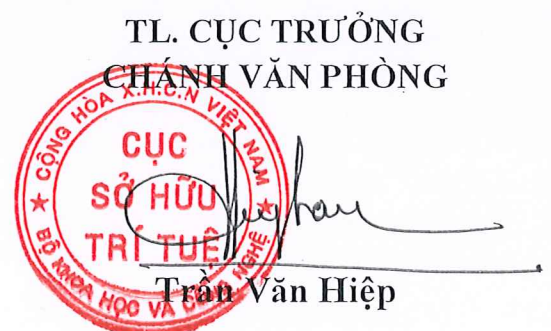 TL. CỤC TRƯỞNG
CHÁNH VĂN PHÒNG
CỘNG HÒA X.H.C.N VIỆT NAM
CỤC
SỞ HỮU
TRÍ TUỆ
BỘ KHOA HỌC VÀ CÔNG NGHỆ
Trần Văn Hiệp